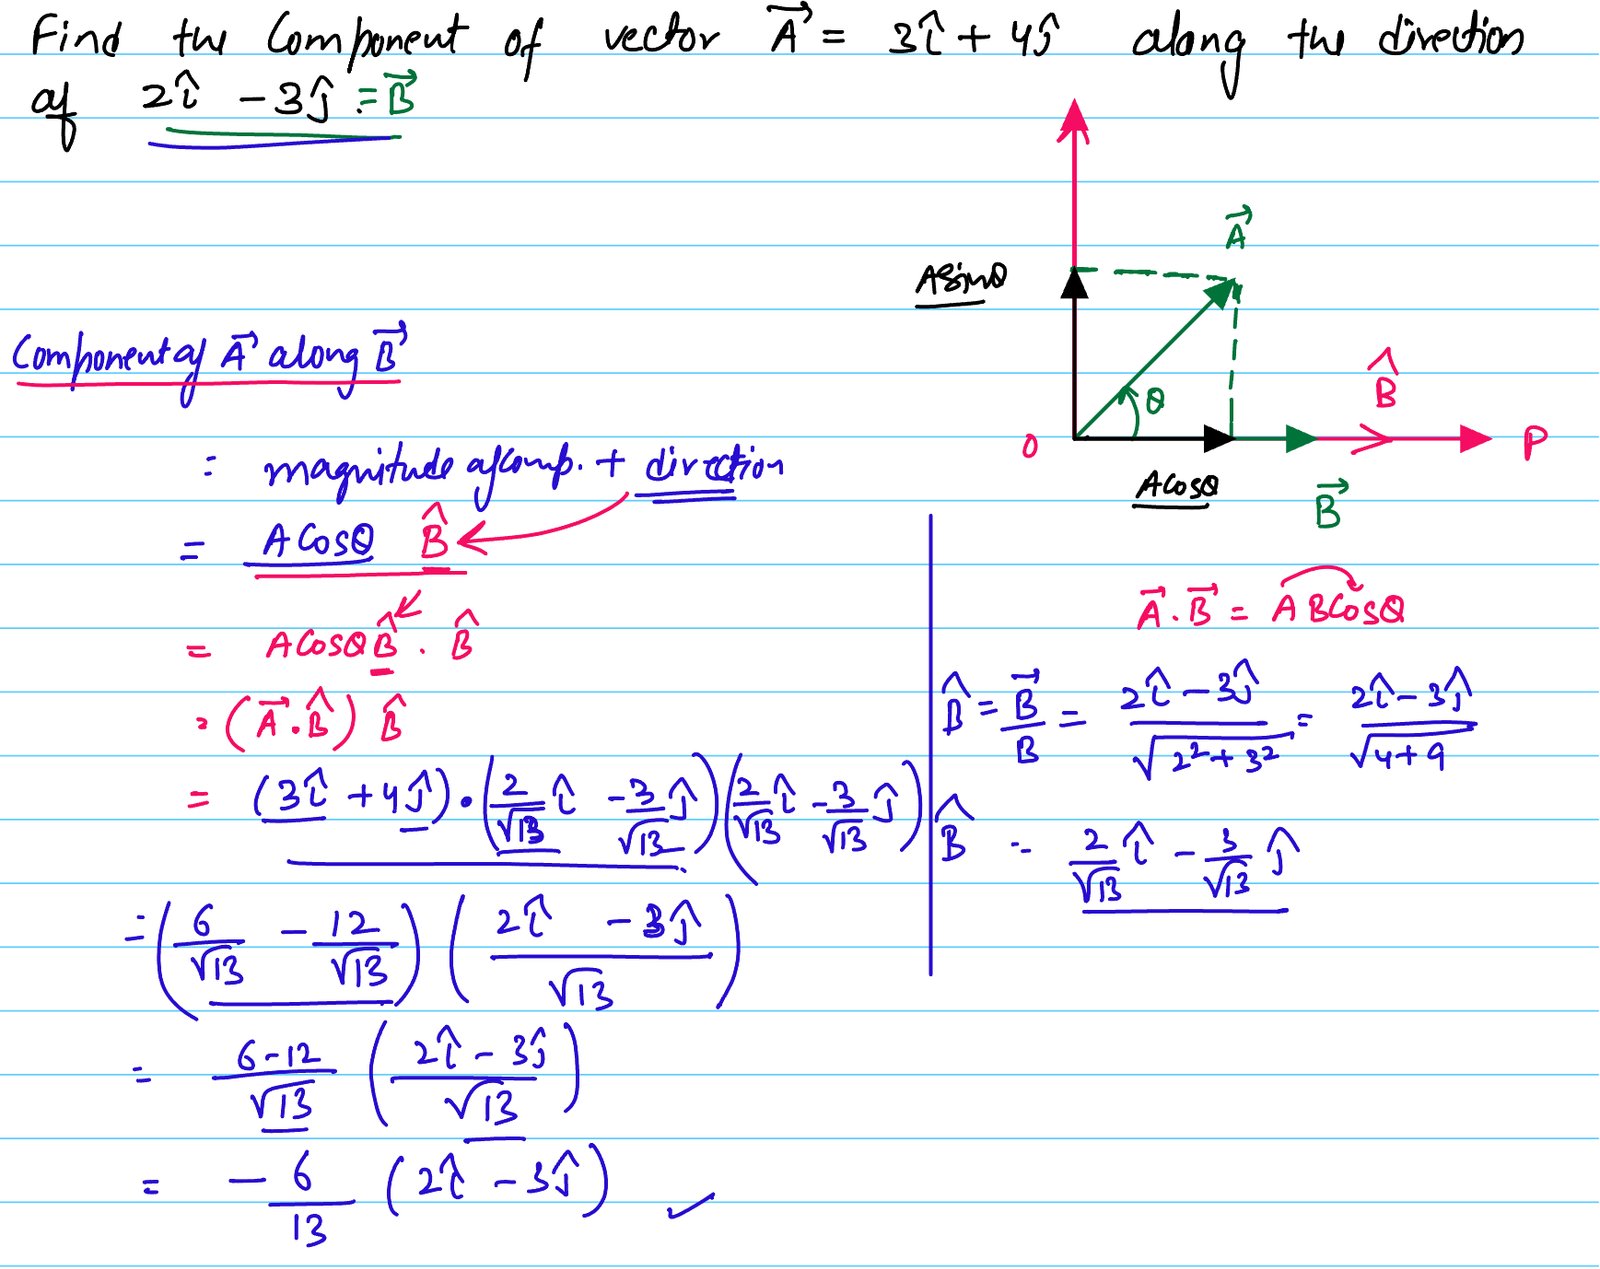 Find the Component of vector A⃗ = 3î + 4ĵ along the direction
of 2î - 3ĵ . = B⃗
A⃗
Asinθ
θ
B̂
O
P
Acosθ
B⃗
Component of A⃗ along B⃗
= magnitude of comp. + direction
= A Cosθ B̂
= A Cosθ B̂ . B̂
= (A⃗ . B̂) B̂
= (3î + 4ĵ) • (2/√13 î - 3/√13 ĵ) (2/√13 î - 3/√13 ĵ)
= (6/√13 - 12/√13) ((2î - 3ĵ)/√13)
= (6-12)/√13 ((2î - 3ĵ)/√13)
= - 6/13 (2î - 3ĵ) ✓
A⃗ . B⃗ = A B Cosθ
B̂ = B⃗/B = (2î - 3ĵ)/√(2² + 3²) = (2î - 3ĵ)/√(4+9)
B̂ = 2/√13 î - 3/√13 ĵ